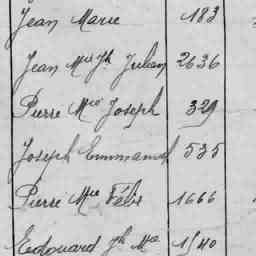 Jean Marie 183
Jean Mie Jh Julien 2636
Pierre Mie Joseph 329
Joseph Emmanuel 535
Pierre Mie Félix 1666
Edouard Jh Mie 1540